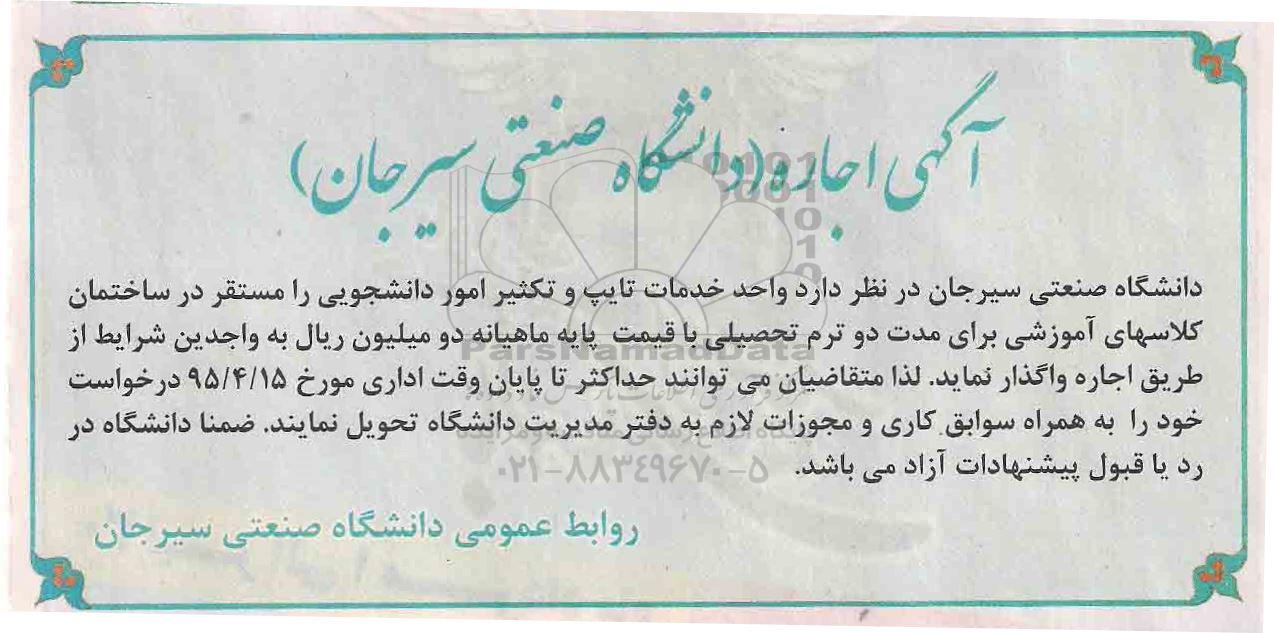 آگهی اجاره (دانشگاه صنعتی سیرجان)
دانشگاه صنعتی سیرجان در نظر دارد واحد خدمات تایپ و تکثیر امور دانشجویی را مستقر در ساختمان
کلاسهای آموزشی برای مدت دو ترم تحصیلی با قیمت پایه ماهیانه دو میلیون ریال به واجدین شرایط از
طریق اجاره واگذار نماید. لذا متقاضیان می توانند حداکثر تا پایان وقت اداری مورخ ۹۵/۴/۱۵ درخواست
خود را به همراه سوابق کاری و مجوزات لازم به دفتر مدیریت دانشگاه تحویل نمایند. ضمنا دانشگاه در
رد یا قبول پیشنهادات آزاد می باشد.
روابط عمومی دانشگاه صنعتی سیرجان
ParsNamadData
۰۲۱-۸۸۳۴۹۶۷۰-۵